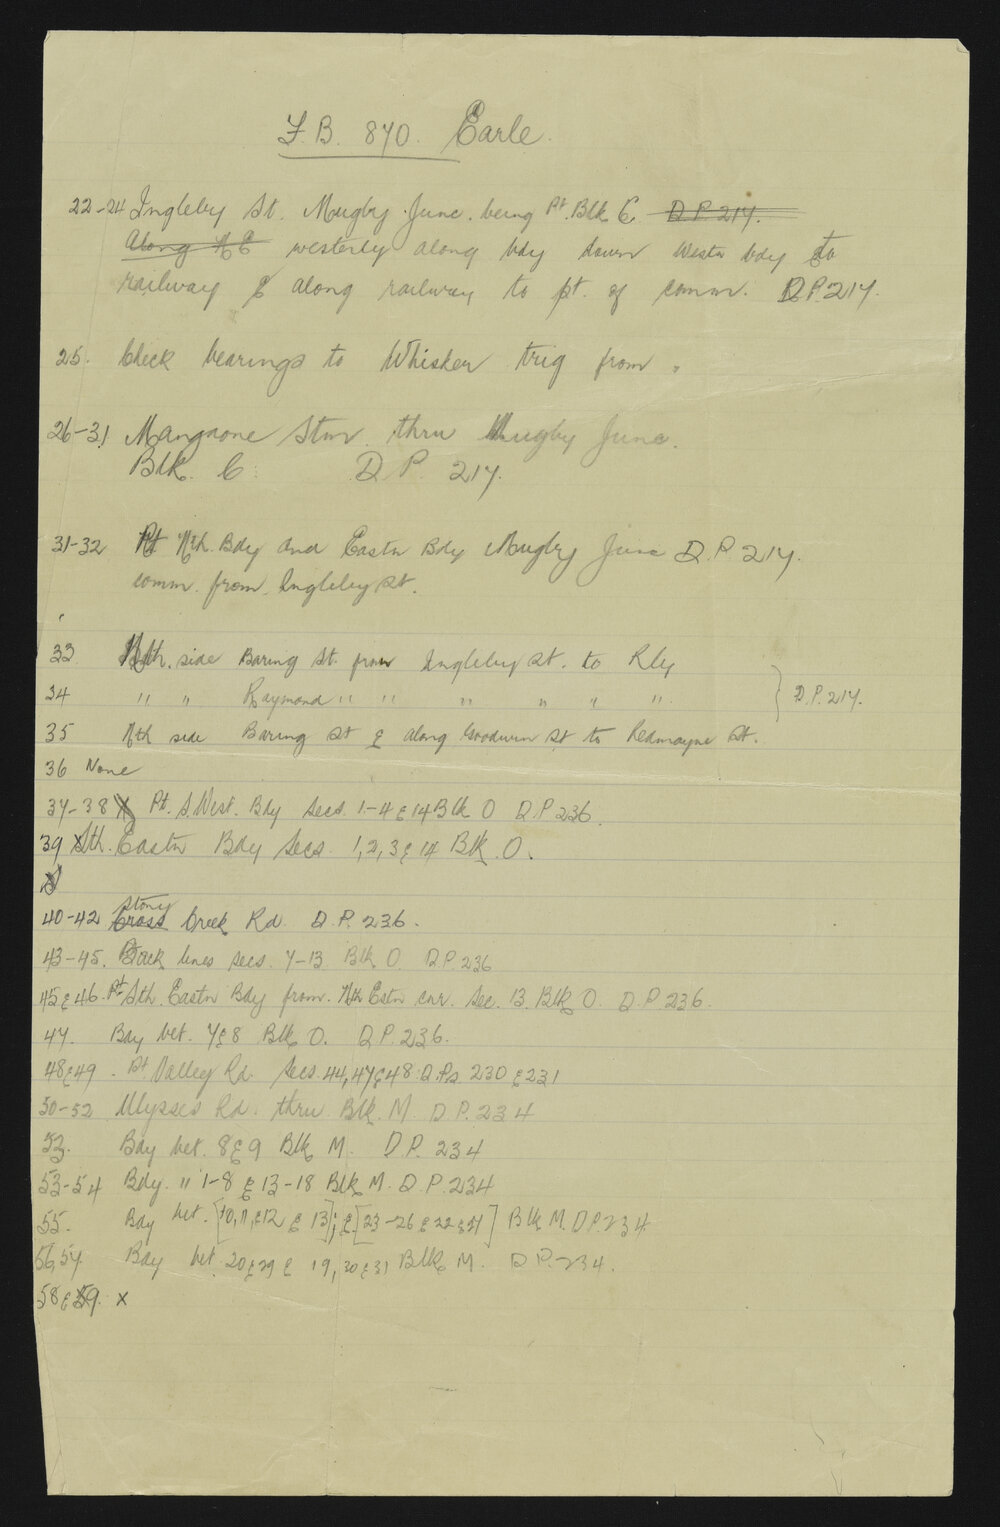 F.B. 870. Earle.
22-24 Ingleby St. Mugby Junc. being Pt. Blk C D.P. 217.
Along westerly along bdy down Westn bdy to
railway & along railway to pt. of comm. D.P. 217.
25. Check bearings to Whisker trig from "
26-31 Mangaone Stm. thru Mugby Junc.
Blk. C D.P. 217.
31-32 Pt Nth. Bdy and Eastn Bdy Mugby Junc D.P. 217.
comm. from Ingleby St.
33 Nth. side Baring St. from Ingleby St. to Rly
34 " " Raymond " " " " " " } D.P. 217.
35 Nth side Baring St & along Goodwin St to Redmayne St.
36 None
37-38 Pt. S. West. Bdy Secs. 1-4 & 14 Blk O D.P. 236.
39 Sth. Eastn Bdy Secs. 1, 2, 3 & 14 Blk. O.
stony
40-42 Cross Creek Rd. D.P. 236.
43-45. Back lines secs. 7-13 Blk O. D.P. 236
45 & 46. Pt Sth. Eastn Bdy from Nth Estn cnr. Sec. 13. Blk O. D.P. 236.
47. Bdy bet. 7 & 8 Blk O. D.P. 236.
48 & 49 - Pt Valley Rd. Secs. 44, 47 & 48 D.Ps 230 & 231
50-52 Ulysses Rd. thru Blk. M. D.P. 234
53. Bdy bet. 8 & 9 Blk M. D.P. 234
53-54 Bdy. " 1-8 & 13-18 Blk M. D.P. 234
55. Bdy bet. [10, 11, & 12 & 13]; & [23-26 & 22 & 27] Blk M. D.P. 234
56, 57. Bdy bet. 20 & 29 & 19, 30 & 31 Blk M. D.P. 234.
58 & 59. x